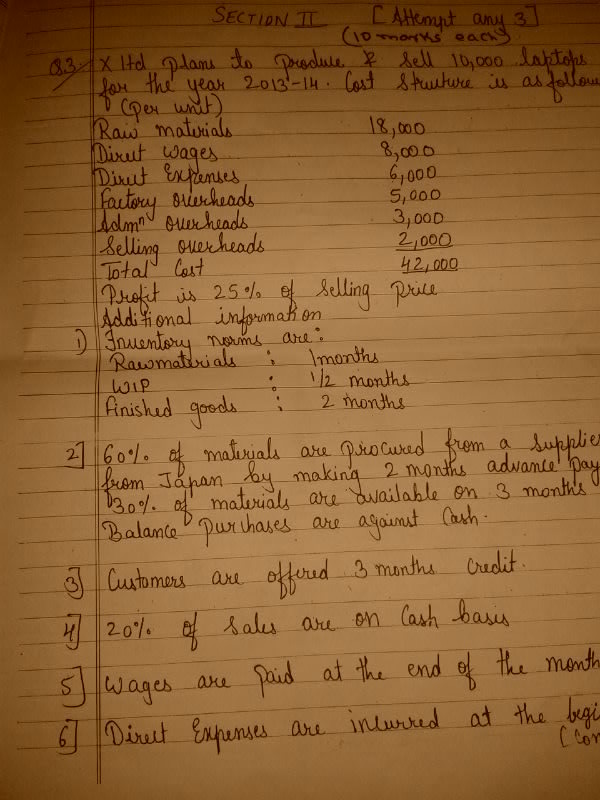 SECTION II [Attempt any 3]
(10 marks each)
Q3. X ltd plans to produce & sell 10,000 laptops
for the year 2013-14. Cost Structure is as follow
(Per unit)
Raw materials 18,000
Direct wages 8,000
Direct Expenses 6,000
Factory overheads 5,000
Admn overheads 3,000
Selling overheads 2,000
Total Cost 42,000
Profit is 25% of Selling price
Additional information
1) Inventory norms are:
Raw materials : 1 months
WIP : 1/2 months
Finished goods : 2 months
2] 60% of materials are procured from a supplie
from Japan by making 2 months advance pay
30% of materials are available on 3 months
Balance purchases are against Cash.
3] Customers are offered 3 months credit.
4] 20% of sales are on Cash basis
5] Wages are paid at the end of the month
6] Direct Expenses are incurred at the begi
(Con